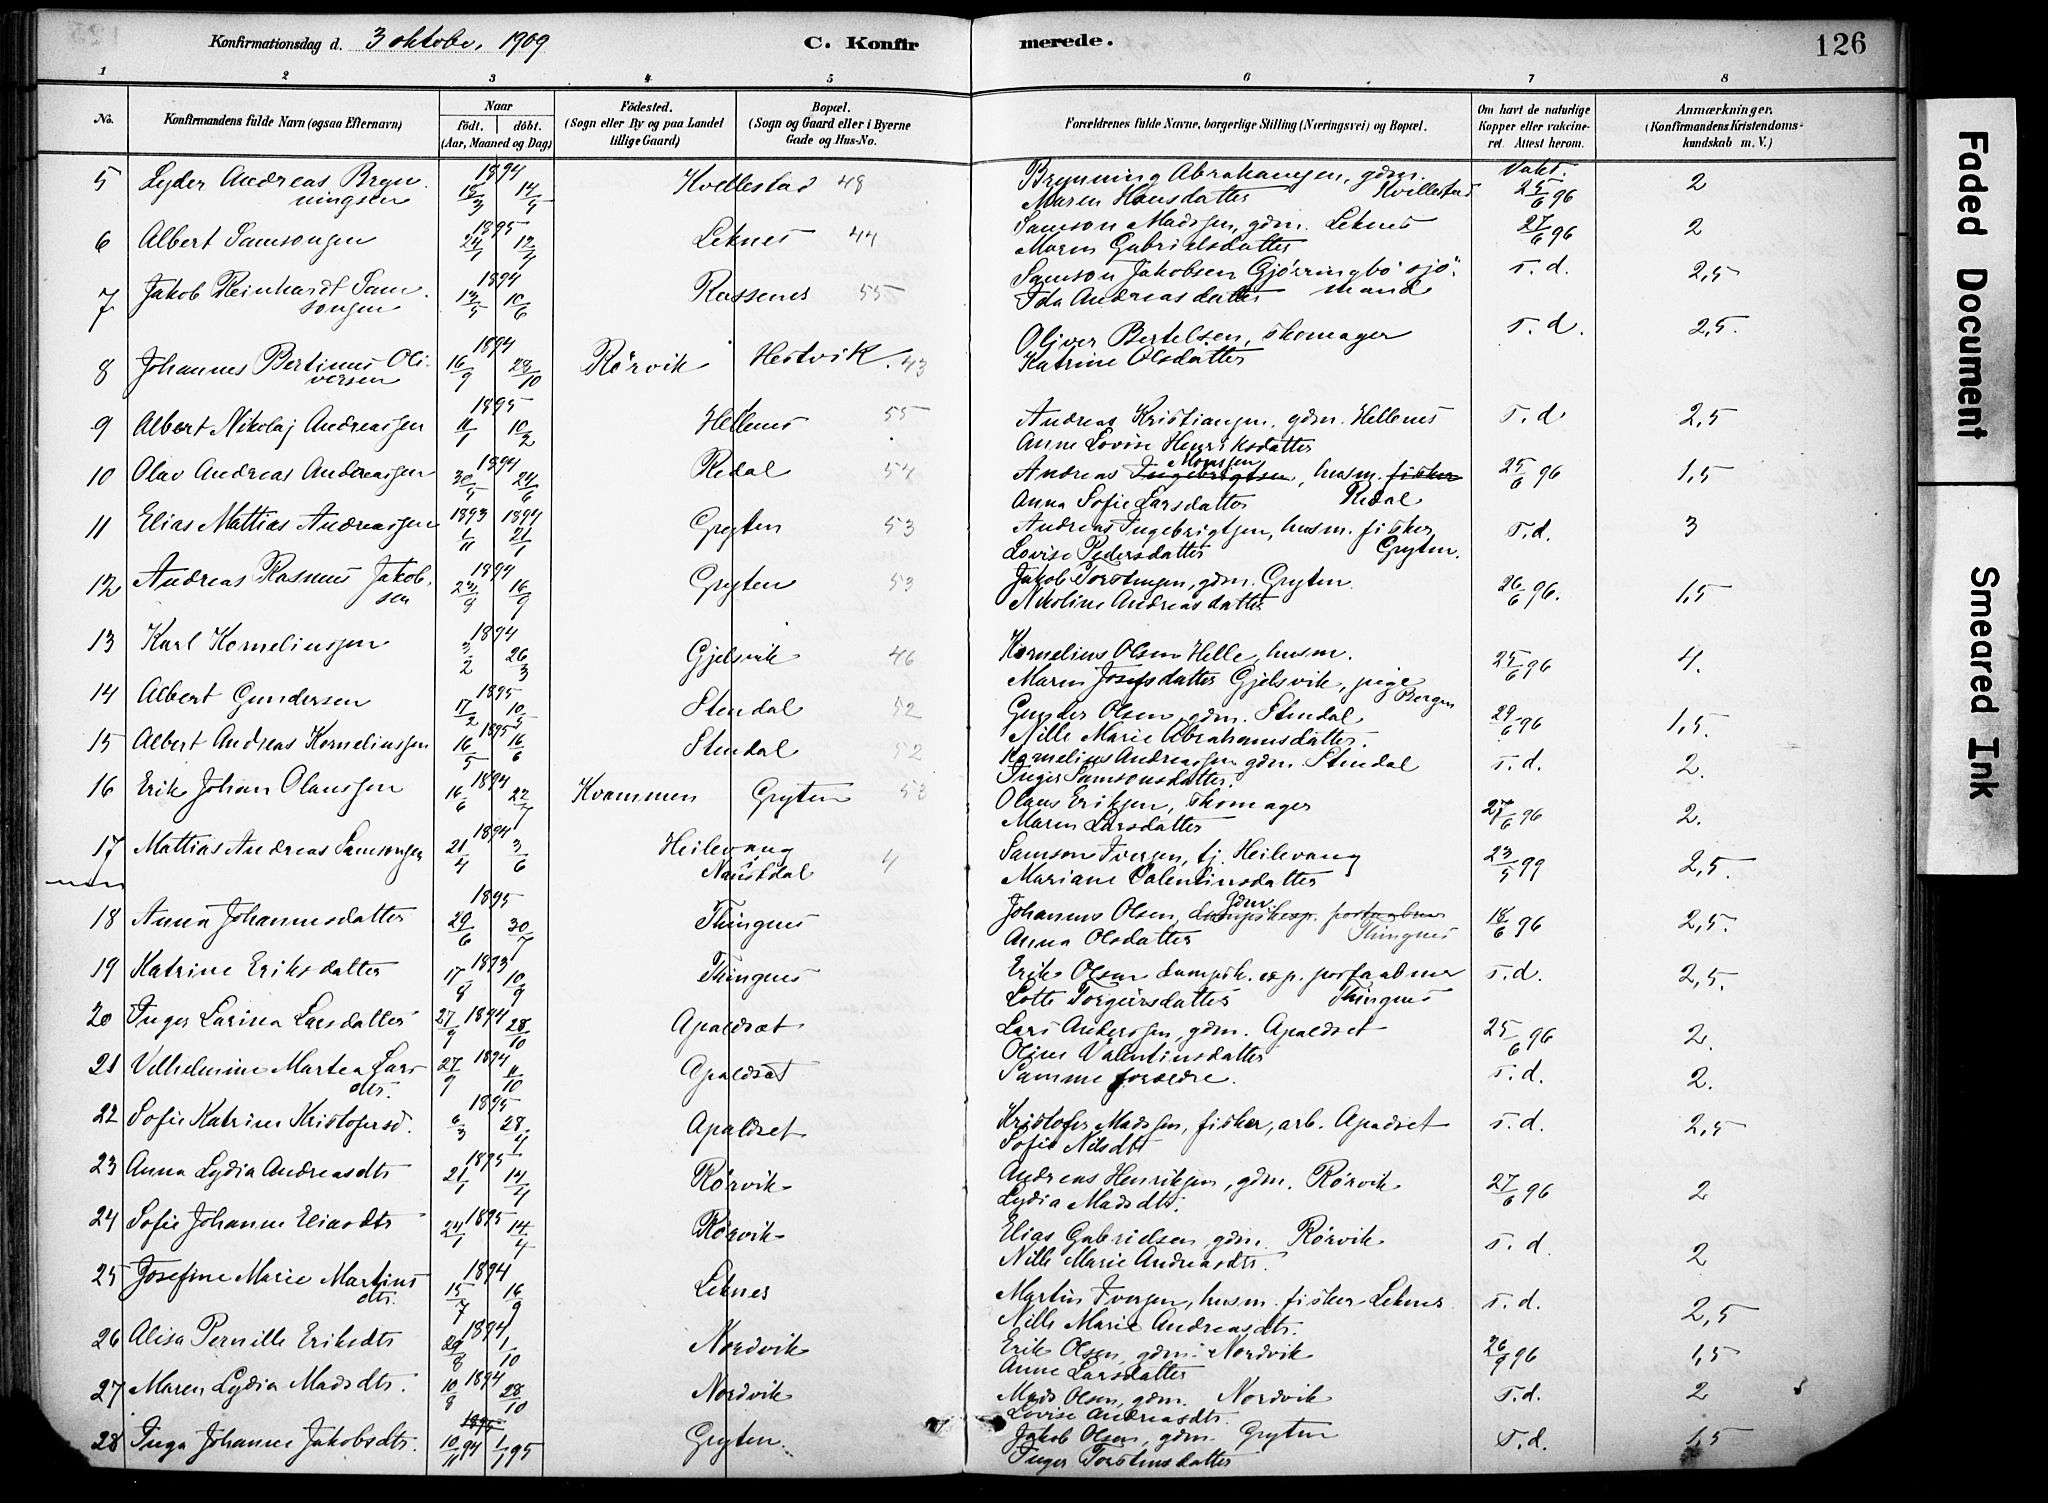 Konfirmationsdag d. 3 oktober 1909 C. Konfirmerede. 126
1 2 3 4 5 6 7 8
No. Konfirmandens fulde Navn (ogsaa Efternavn) Naar födt. döbt. (Aar, Maaned og Dag) Födested. (Sogn eller By og paa Landet tillige Gaard) Bopæl. (Sogn og Gaard eller i Byerne Gade og Hus-No. Forældrenes fulde Navne, borgerlige Stilling (Næringsvei) og Bopæl. Om havt de naturlige Kopper eller vakcineret. Attest herom. Anmærkninger, (Konfirmandens Kristendomskundskab m. V.)
5 Lyder Andreas Brynningsen 1894 18/3 14/5 Kvellestad 48 Brynning Abrahamsen, gdm. Kvellestad Vakt. 25/6 96 2
Maren Hansdatter
6 Albert Samsonsen 1895 24/1 12/4 Leknes 44 Samson Madssen, gdm. Leknes 27/6 96 2
Maren Gabrielsdatter
7 Jakob Reinhardt Samsonsen 1894 13/5 10/6 Russenes 55 Samson Jakobsen Gjörringbö sjömand s.d. 2,5
Ida Andreasdatter
8 Johannes Bertinus Oliversen 1894 16/9 28/10 Rörvik Hestvik 43 Oliver Bertelsen, skomager s.d. 2,5.
Katrine Olsdatter
9 Albert Nikolaj Andreassen 1895 11/1 10/2 Hellenes 55 Andreas Kristiansen, gdm. Hellenes s.d 2,5
Anne Lovise Henriksdatter
10 Olav Andreas Andreassen 1894 30/5 24/6 Redal 54 Andreas Ingebrigtsen Monssen, husm. fisker Redal 25/6 96 1,5
Anna Sofie Larsdatter
11 Elias Mattias Andreassen 1893 1/11 1894 21/1 Gryten 53 Andreas Ingebrigtsen, husm. fisker Gryten. s.d. 3
Lovise Pedersdatter
12 Andreas Rasmus Jakobsen 1894 23/8 16/9 Gryten 53 Jakob Torstensen, gdm. Gryten. 26/6 96. 1,5
Nikoline Andreasdatter
13 Karl Korneliussen 1894 3/2 26/3 Gjelsvik 46 Kornelius Olsen Helle, husm. 25/6 96 4.
Maren Josefsdatter Gjelsvik, pige Bergen
14 Albert Gundersen 1895 17/2 10/5 Stendal 52 Gunder Olsen, gdm. Stendal 29/6 96 1,5.
Nille Marie Abrahamsdatter.
15 Albert Andreas Korneliussen 1895 16/5 16/6 Stendal 52 Kornelius Andreassen gdm. Stendal s.d. 2.
Inger Samsonsdatter.
16 Erik Johan Olaussen 1894 16/6 22/7 Kvammen Gryten 53 Olaus Eriksen, skomager 27/6 96 2.
Maren Larsdatter
17 Mattias Andreas Samsonsen 1894 21/4 3/6 Heilevang Naustdal 4 Samson Iversen, tj. Heilevang 23/5 99 2,5.
Mariane Valentinsdatter
18 Anna Johannesdatter 1895 29/6 30/7 Thingnes Johannes Olsen, gdm. dampskexp. postaabner Thingnes 18/6 96 2,5.
Anna Olsdatter
19 Katrine Eriksdatter 1893 17/8 10/9 Thingnes Erik Olsen dampsk. exp. postaabner s.d. 2,5.
Lotte Torgeirsdatter Thingnes
20 Inger Larina Larsdatter 27/9 1894 28/10 Apaldset Lars Anderssen, gdm. Apaldset 25/6 96 2.
Oline Valentinsdatter
21 Vilhelmine Martea Larsdtr. 27/9 1894 11/10 Apaldset Samme forældre. s.d. 2.
22 Sofie Katrine Kristofersd. 1895 6/3 28/4 Apaldset Kristofer Madssen, fisker, arb. Apaldset s.d. 2,5
Sofie Nilsdtr
23 Anna Lydia Andreasdtr 1895 21/1 14/4 Rörvik Andreas Henriksen, gdm. Rörvik 27/6 96 2
Lydia Madsdtr.
24 Sofie Johanne Eliasdtr 1895 24/1 14/4 Rörvik Elias Gabrielsen gdm. Rörvik s.d. 2
Nille Marie Andreasdtr.
25 Josefine Marie Martinsdtr. 1894 15/7 16/9 Leknes Martin Iversen, husm. fisker Leknes s.d. 2,5
Nille Marie Andreasdtr.
26 Alisa Pernille Eriksdtr 1894 29/8 1/10 Nordvik Erik Olsen, gdm. Nordvik 26/9 96 1,5
Anne Larsdatter
27 Maren Lydia Madsdtr. 10/8 1894 28/10 Nordvik Mads Olsen, gdm. Nordvik s.d. 2
Lovise Andreasdtr.
28 Inga Johanne Jakobsdtr. 10/11 94 1/1 95 Gryten. Jakob Olsen, gdm. Gryten s.d. 1,5
Inger Torstensdatter
Faded Document
Smeared Ink